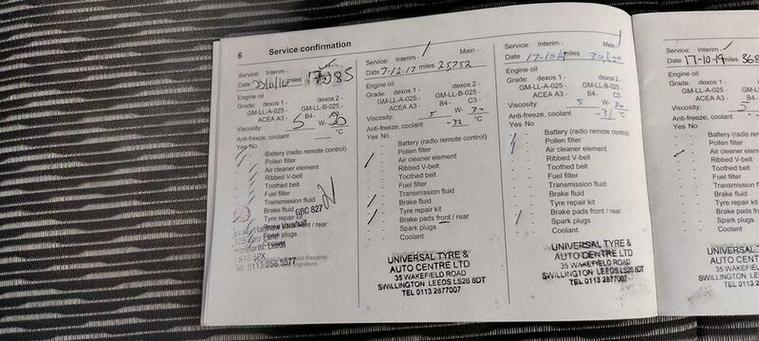 6 Service confirmation
Service: Interim -
Date miles 17085
Engine oil
Grade: dexos 1 - dexos 2 -
GM-LL-A-025 - GM-LL-B-025 -
ACEA A3 - B4- C3 -
Viscosity: 5 W- 30
Anti-freeze, coolant °C
Yes No
Battery (radio remote control)
Pollen filter
Air cleaner element
Ribbed V-belt
Toothed belt
Fuel filter
Transmission fluid
Brake fluid GBC 827
Tyre repair kit
Brake pads front / rear
Spark plugs
Leeds
Tel: 0113 258 5577
Service: Interim - / Main -
Date 7-12-17 miles 25752
Engine oil
Grade: dexos 1 - dexos 2 -
GM-LL-A-025 - GM-LL-B-025 -
ACEA A3 - B4- C3 -
Viscosity: 5 W- 30
Anti-freeze, coolant -32 °C
Yes No
Battery (radio remote control)
Pollen filter
Air cleaner element
Ribbed V-belt
Toothed belt
Fuel filter
Transmission fluid
Brake fluid
Tyre repair kit
Brake pads front / rear
Spark plugs
Coolant
UNIVERSAL TYRE &
AUTO CENTRE LTD
35 WAKEFIELD ROAD
SWILLINGTON LEEDS LS26 8DT
TEL 0113 2877007
Service: Interim - Main -
Date miles
Engine oil
Grade: dexos 1 - dexos 2 -
GM-LL-A-025 - GM-LL-B-025 -
ACEA A3 - B4- C3 -
Viscosity: 5 W- 30
Anti-freeze, coolant -31 °C
Yes No
Battery (radio remote control)
Pollen filter
Air cleaner element
Ribbed V-belt
Toothed belt
Fuel filter
Transmission fluid
Brake fluid
Tyre repair kit
Brake pads front / rear
Spark plugs
Coolant
UNIVERSAL TYRE &
AUTO CENTRE LTD
35 WAKEFIELD ROAD
SWILLINGTON LEEDS LS26 8DT
TEL 0113 2877007
Service: Interim -
Date 17-10-19 miles 368
Engine oil
Grade: dexos 1 -
GM-LL-A-025 -
ACEA A3 -
Viscosity: 5
Anti-freeze, coolant
Yes No
Battery (radio remo
Pollen filter
Air cleaner element
Ribbed V-belt
Toothed belt
Fuel filter
Transmission fluid
Brake fluid
Tyre repair kit
Brake pads fron
Spark plugs
Coolant
UNIVERSAL
AUTO CEN
35 WAKEFIE
SWILLINGTON LE
TEL 0113